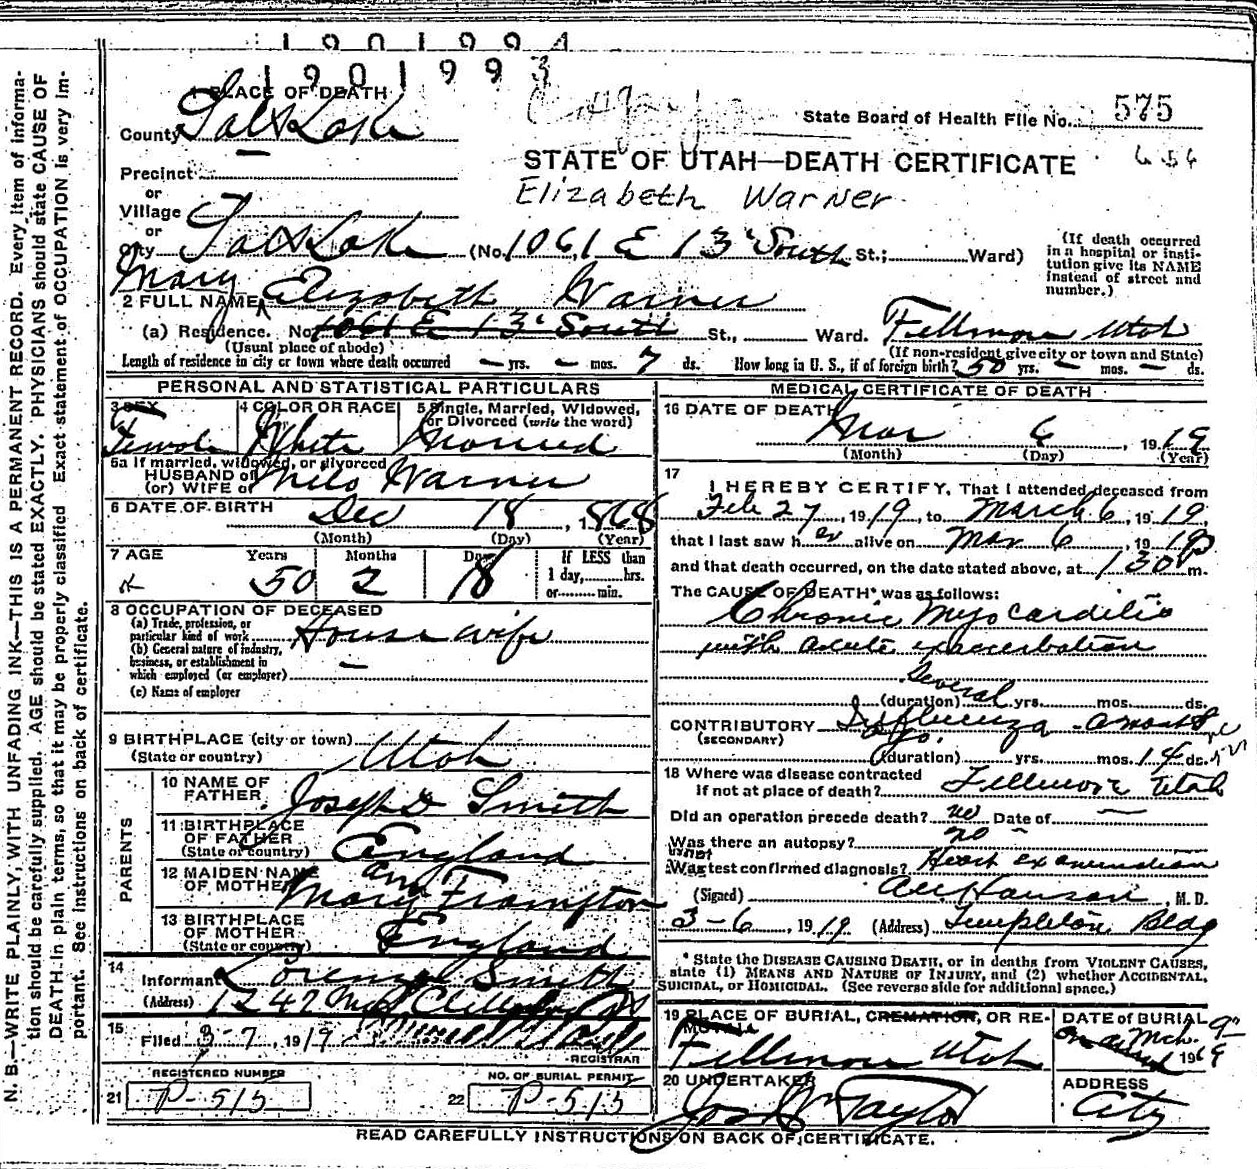 1901994
1901993
1 PLACE OF DEATH
State Board of Health File No. 575
County Salt Lake
STATE OF UTAH—DEATH CERTIFICATE
Precinct
Elizabeth Warner
or
Village
or
City Salt Lake (No. 1061 E 13' South St.; Ward)
(If death occurred in a hospital or institution give its NAME instead of street and number.)
Mary
2 FULL NAME Elizabeth Warner
(a) Residence. No. 1061 E 13' South St., Ward. Fillmore Utah
(Usual place of abode) (If non-resident give city or town and State)
Length of residence in city or town where death occurred — yrs. — mos. 7 ds. How long in U. S., if of foreign birth? 50 yrs. — mos. — ds.
PERSONAL AND STATISTICAL PARTICULARS
3 SEX 4 COLOR OR RACE 5 Single, Married, Widowed, or Divorced (write the word)
Female White Married
5a If married, widowed, or divorced
HUSBAND of
(or) WIFE of Milo Warner
6 DATE OF BIRTH Dec 18, 1868
(Month) (Day) (Year)
7 AGE Years Months Days If LESS than
50 2 18 1 day, hrs.
or min.
8 OCCUPATION OF DECEASED
(a) Trade, profession, or
particular kind of work House wife
(b) General nature of industry,
business, or establishment in
which employed (or employer) —
(c) Name of employer
9 BIRTHPLACE (city or town)
(State or country) Utah
PARENTS
10 NAME OF
FATHER Joseph D Smith
11 BIRTHPLACE
OF FATHER
(State or country) England
12 MAIDEN NAME
OF MOTHER Mary Ann Frampton
13 BIRTHPLACE
OF MOTHER
(State or country) England
14
Informant Lorenzo Smith
(Address) 1247
15
Filed 3-7, 1919
REGISTRAR
REGISTERED NUMBER NO. OF BURIAL PERMIT
21 P-515 22 P-515
MEDICAL CERTIFICATE OF DEATH
16 DATE OF DEATH
Mar 6, 1919
(Month) (Day) (Year)
17
I HEREBY CERTIFY, That I attended deceased from
Feb 27, 1919, to March 6, 1919,
that I last saw her alive on Mar 6, 1919
and that death occurred, on the date stated above, at 130 P m.
The CAUSE OF DEATH* was as follows:
Chronic Myocarditis
with acute exacerbation
Several
(duration) yrs. mos. ds.
CONTRIBUTORY Influenza
(SECONDARY)
(duration) yrs. mos. 14 ds.
18 Where was disease contracted
if not at place of death? Fillmore Utah
Did an operation precede death? no Date of —
Was there an autopsy? no
What
Was test confirmed diagnosis? Heart examination
(Signed) Hanson, M. D.
3-6, 1919 (Address) Templeton Bldg
* State the DISEASE CAUSING DEATH, or in deaths from VIOLENT CAUSES, state (1) MEANS AND NATURE OF INJURY, and (2) whether ACCIDENTAL, SUICIDAL, or HOMICIDAL. (See reverse side for additional space.)
19 PLACE OF BURIAL, CREMATION, OR REMOVAL DATE of BURIAL
Fillmore Utah Mch. 9" 1919
20 UNDERTAKER ADDRESS
Jos Wm Taylor City
READ CAREFULLY INSTRUCTIONS ON BACK OF CERTIFICATE.
N. B.—WRITE PLAINLY, WITH UNFADING INK—THIS IS A PERMANENT RECORD. Every item of information should be carefully supplied. AGE should be stated EXACTLY. PHYSICIANS should state CAUSE OF DEATH in plain terms, so that it may be properly classified. Exact statement of OCCUPATION is very important. See instructions on back of certificate.